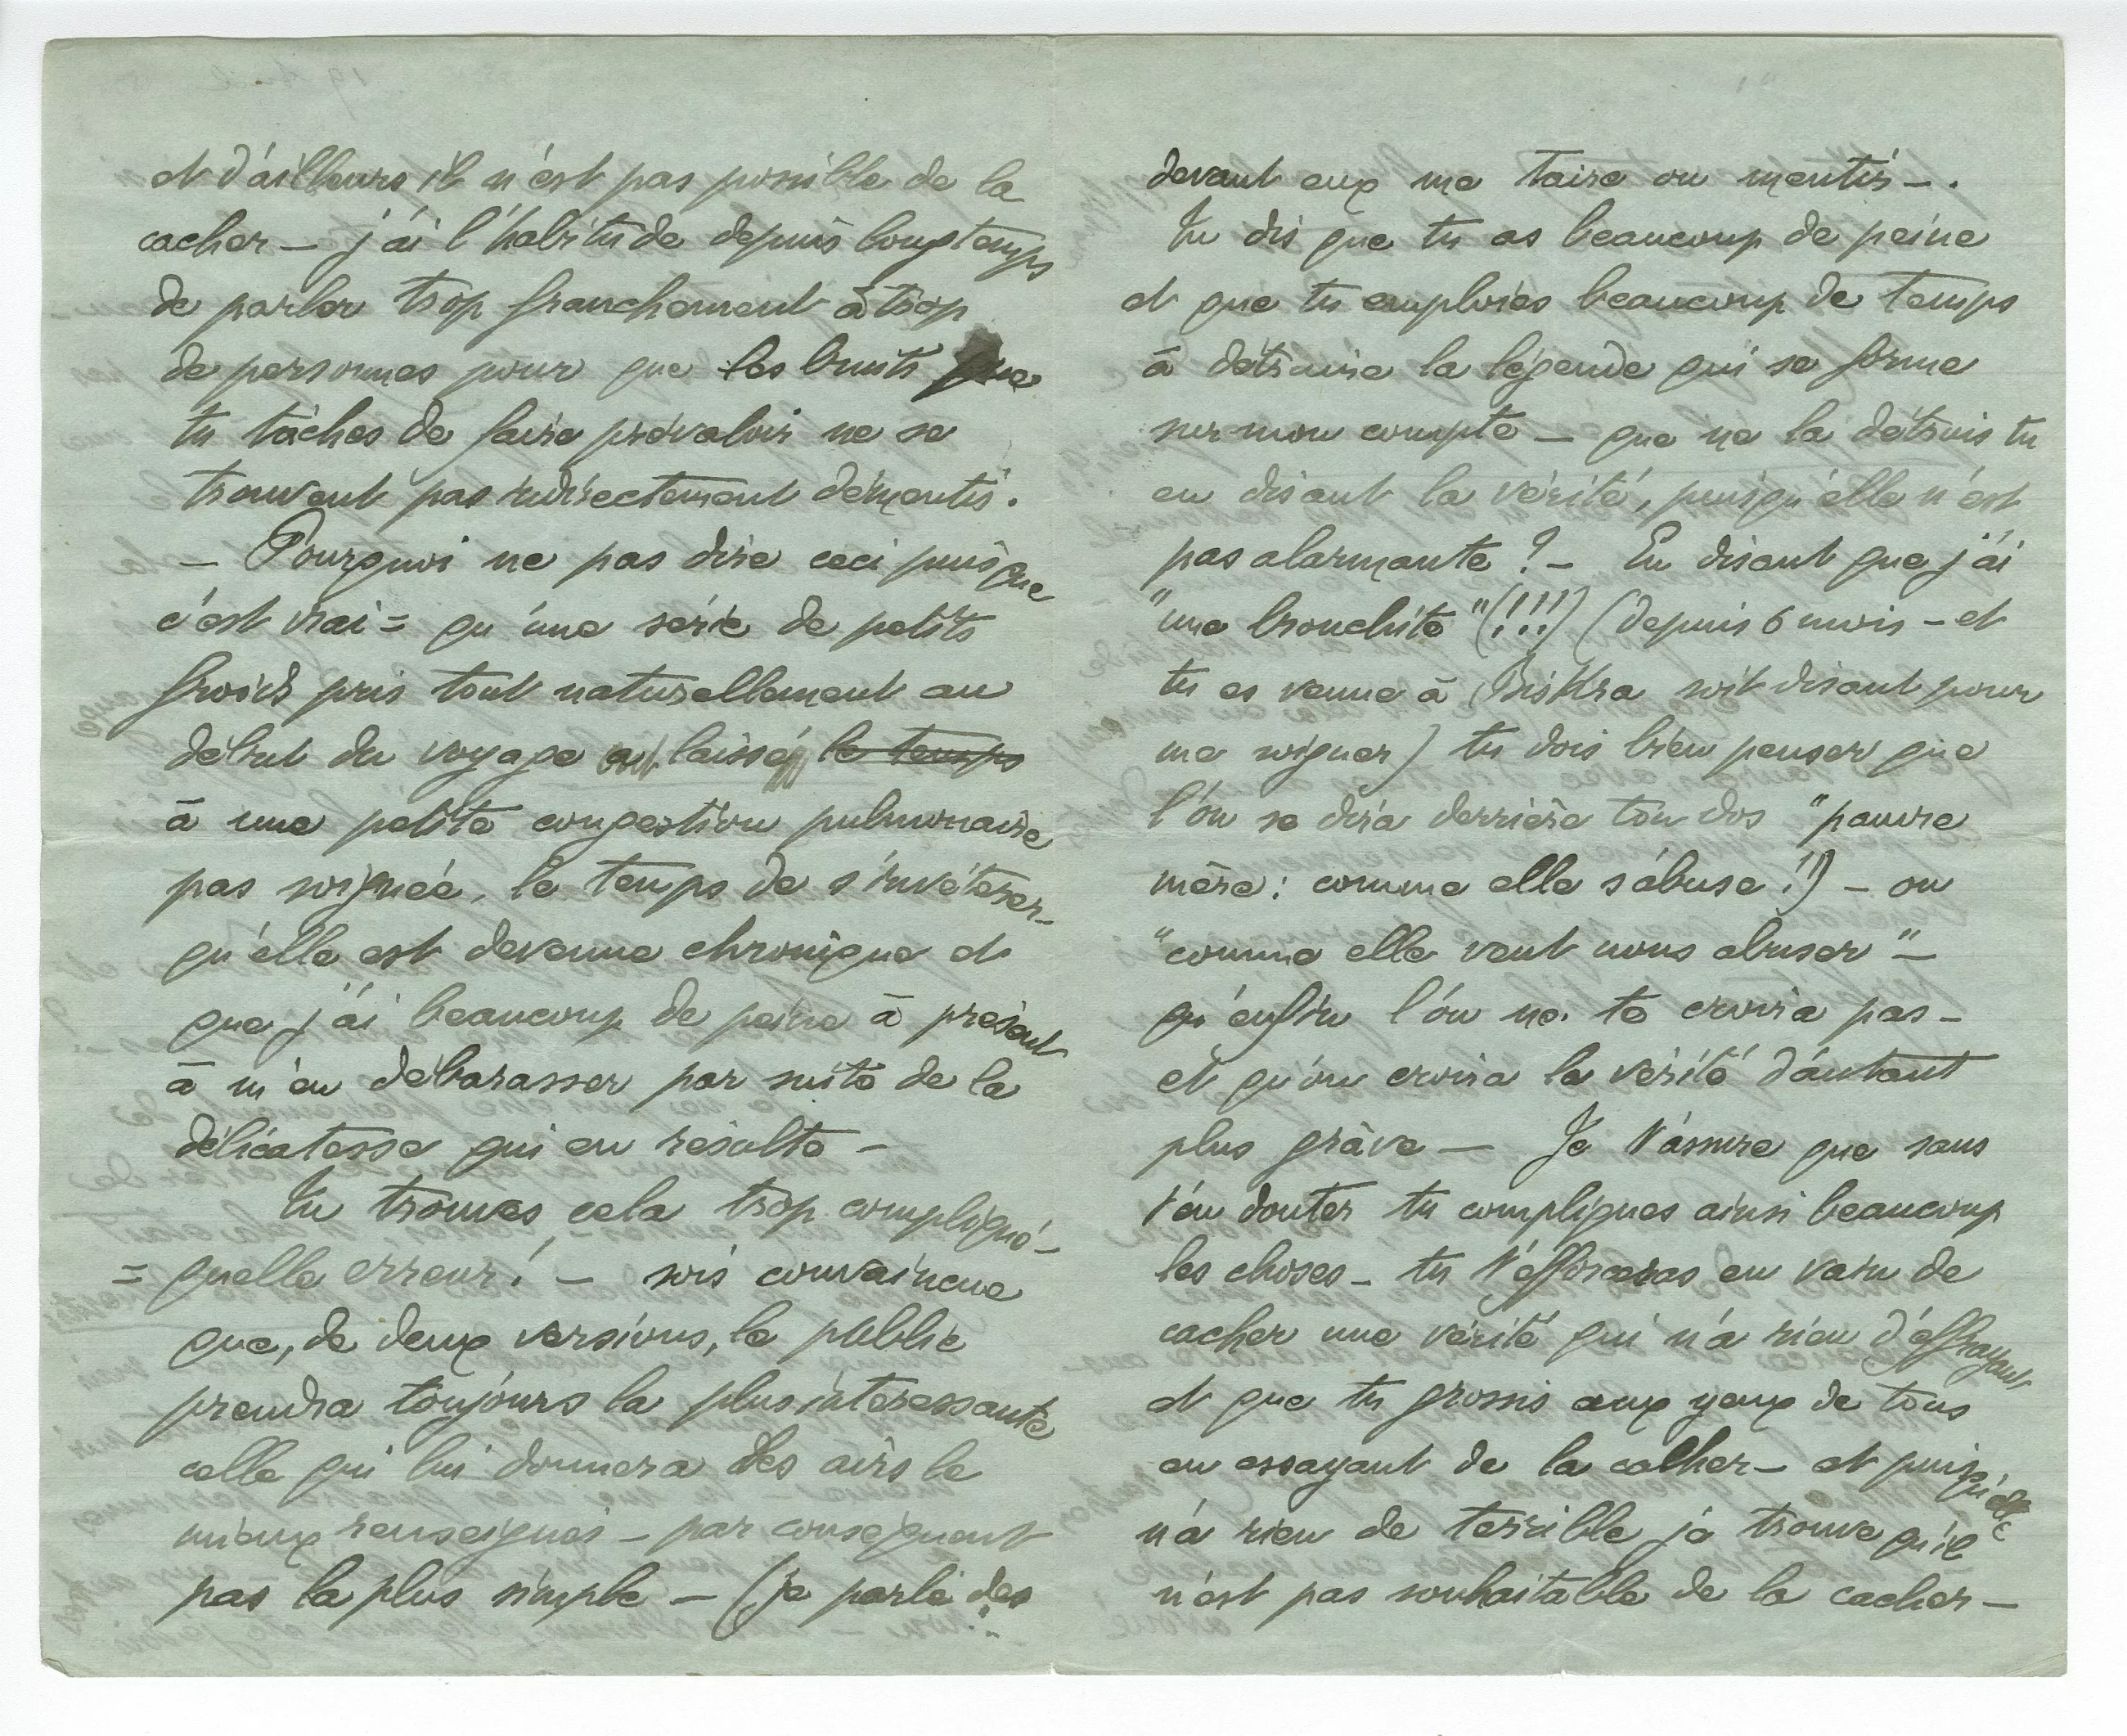 et d'ailleurs il n'est pas possible de la
cacher – j'ai l'habitude depuis longtemps
de parler trop franchement à trop
de personnes pour que les bruits que
tu tâches de faire prévaloir ne se
trouvent pas indirectement démentis.
– Pourquoi ne pas dire ceci puisque
c'est vrai = qu'une série de petits
froids pris tout naturellement au
début du voyage a laissé le temps
à une petite congestion pulmonaire
pas soignée, le temps de s'invétérer –
qu'elle est devenue chronique et
que j'ai beaucoup de peine à présent
à m'en débarasser par suite de la
délicatesse qui en résulte –
Tu trouves cela trop compliqué –
= quelle erreur! – sois convaincue
que, de deux versions, le public
prendra toujours la plus intéressante
celle qui lui donnera des airs le
mieux renseignés – par conséquent
pas la plus simple – (je parle des
devant eux me taire ou mentir – .
Tu dis que tu as beaucoup de peine
et que tu emploies beaucoup de temps
à détruire la légende qui se forme
sur mon compte – que ne la détruis tu
en disant la vérité, puisqu'elle n'est
pas alarmante? – En disant que j'ai
"une bronchite" (!!!) (depuis 6 mois – et
tu es venue à Biskra soit disant pour
me soigner) tu dois bien penser que
l'on se dira derrière ton dos "pauvre
mère: comme elle s'abuse!") – ou
"comme elle veut nous abuser" –
qu'enfin l'on ne te croira pas –
et qu'on croira la vérité d'autant
plus grâve – Je t'assure que sans
t'en douter tu compliques ainsi beaucoup
les choses – tu t'efforceras en vain de
cacher une vérité qui n'a rien d'effrayant
et que tu grossis aux yeux de tous
en essayant de la cacher – et puisqu'elle
n'a rien de terrible je trouve qu'il
n'est pas souhaitable de la cacher –